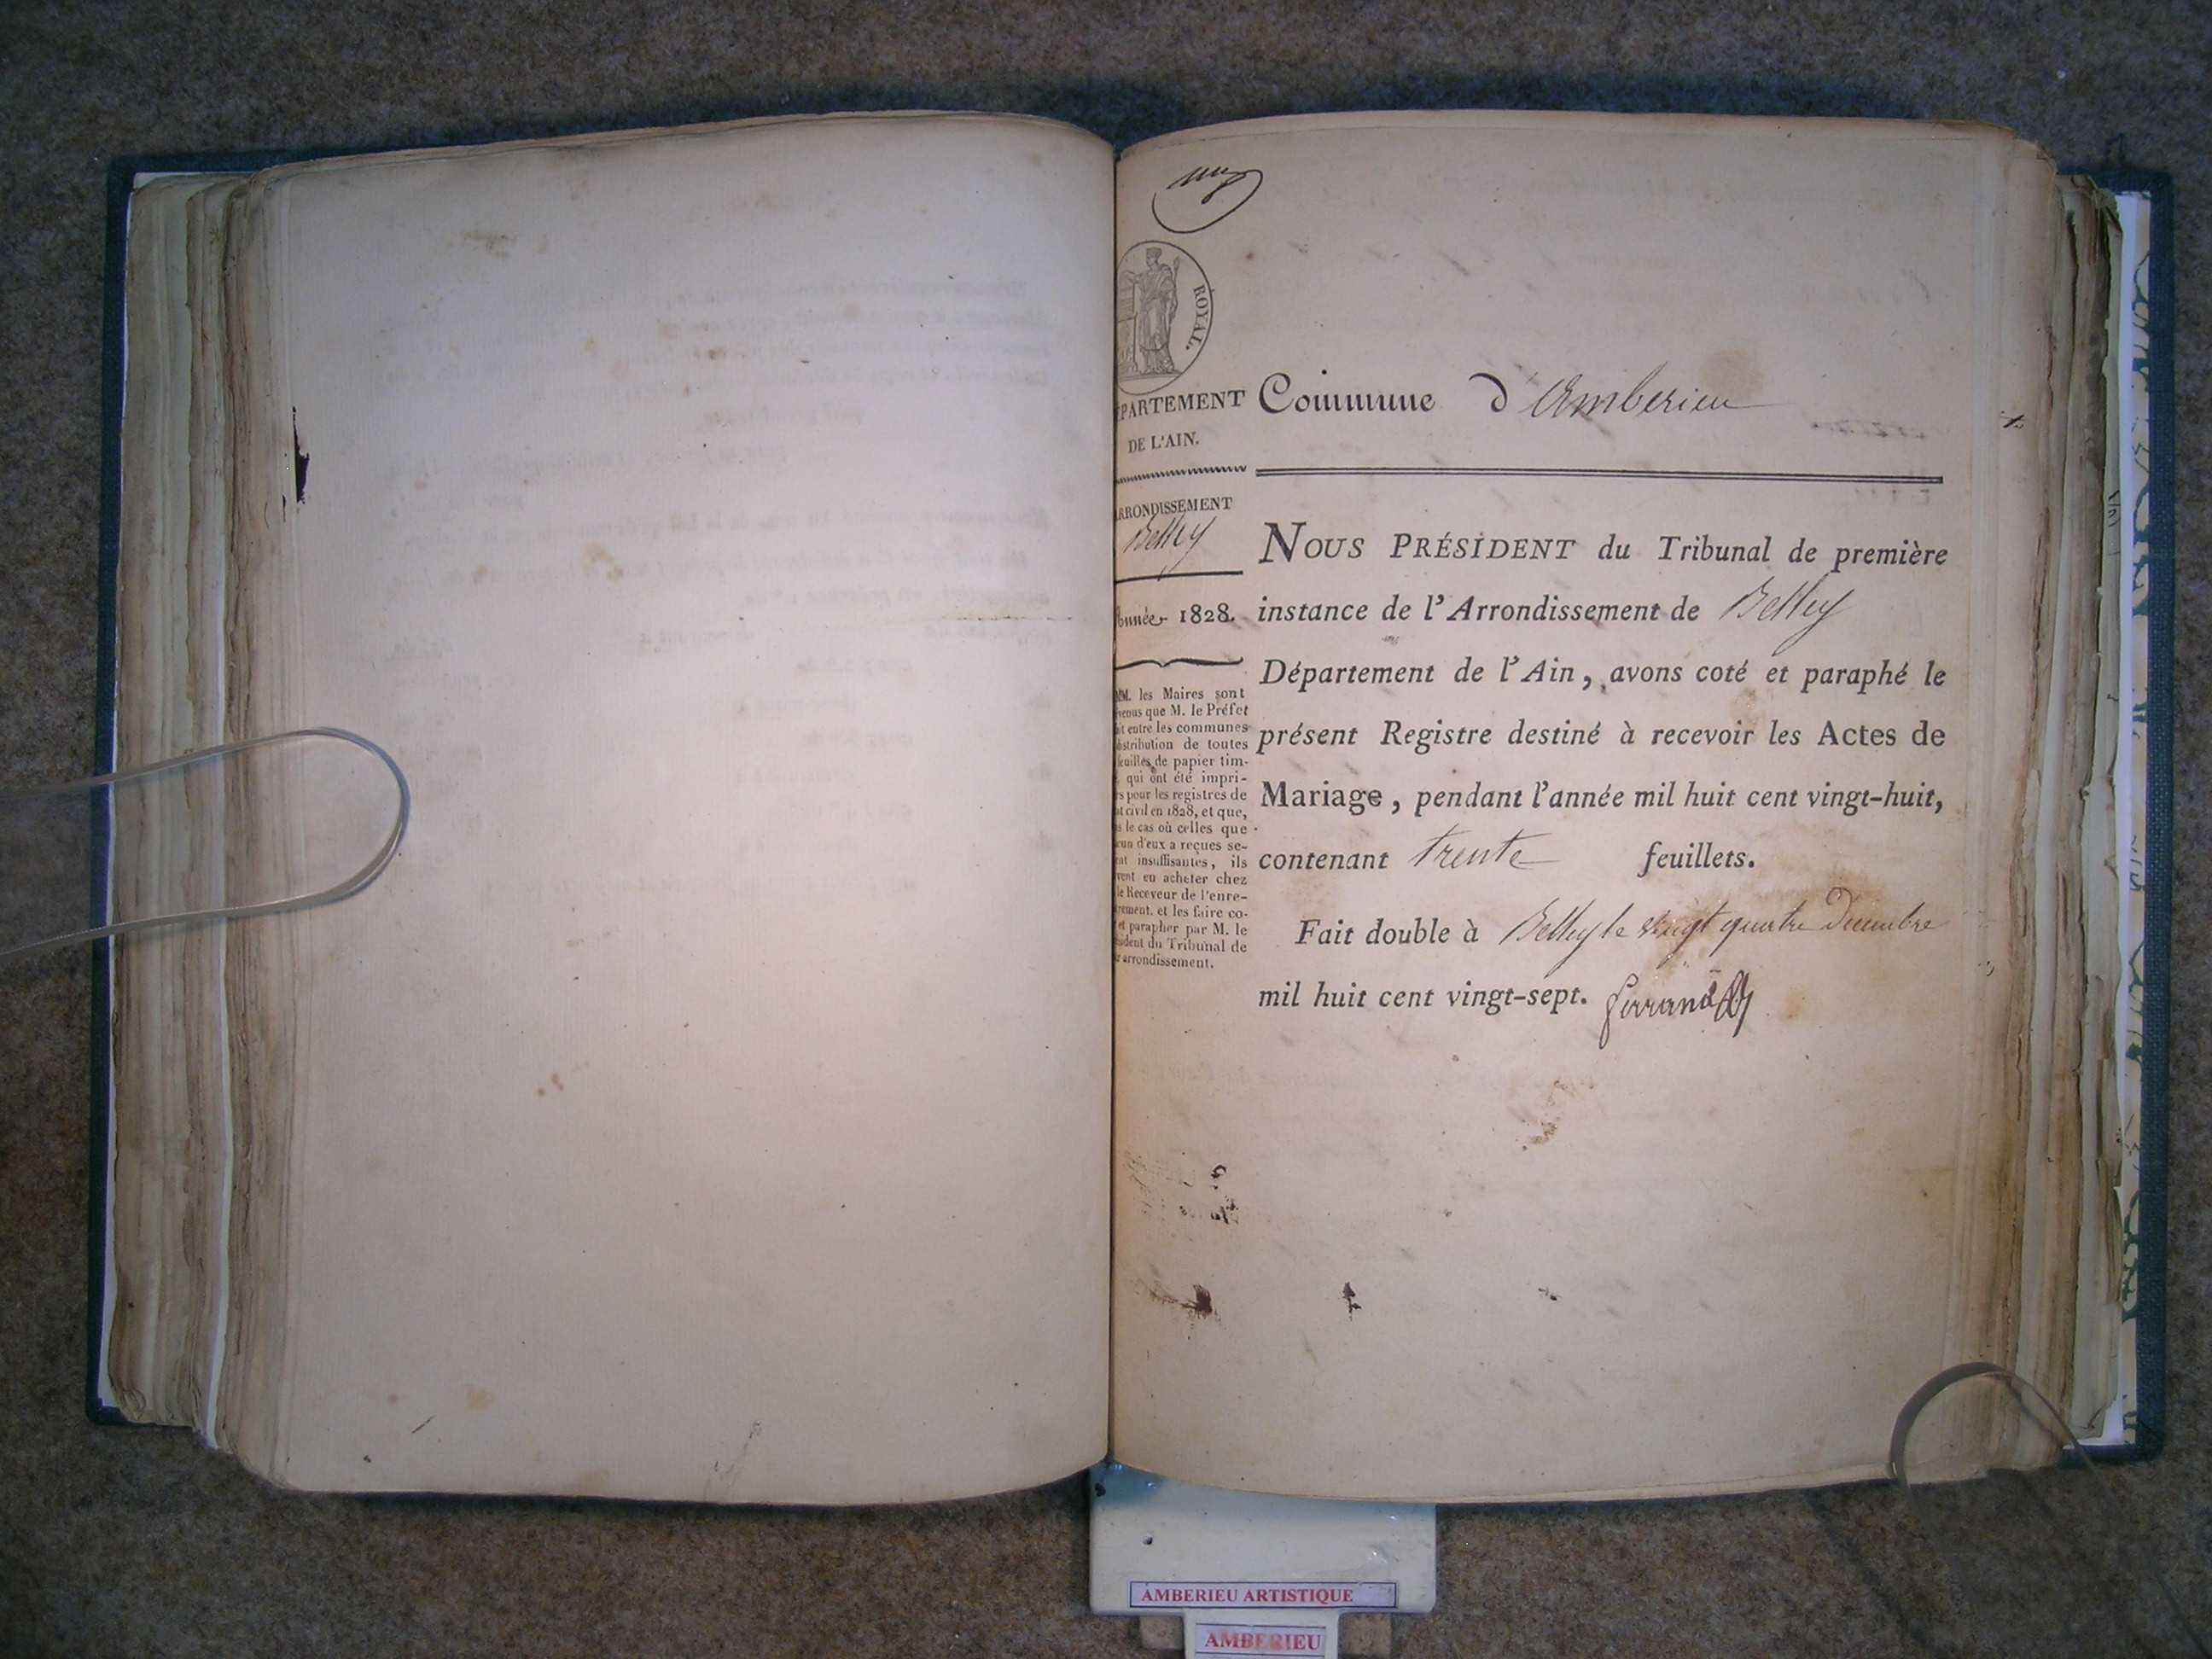 ROYAL.
PARTEMENT
DE L'AIN.
Commune d'Amberieu
RRONDISSEMENT
Belley
Année 1828.
MM. les Maires sont
venus que M. le Préfet
it entre les communes
istribution de toutes
feuilles de papier tim-
qui ont été impri-
s pour les registres de
at civil en 1828, et que,
s le cas où celles que
cun d'eux a reçues se-
nt insuffisantes, ils
vent en acheter chez
le Receveur de l'enre-
rement, et les faire co-
et parapher par M. le
sident du Tribunal de
r arrondissement.
NOUS PRÉSIDENT du Tribunal de première
instance de l'Arrondissement de Belley
Département de l'Ain, avons coté et paraphé le
présent Registre destiné à recevoir les Actes de
Mariage, pendant l'année mil huit cent vingt-huit,
contenant trente feuillets.
Fait double à Belley le vingt quatre Decembre
mil huit cent vingt-sept.
AMBERIEU ARTISTIQUE
AMBERIEU